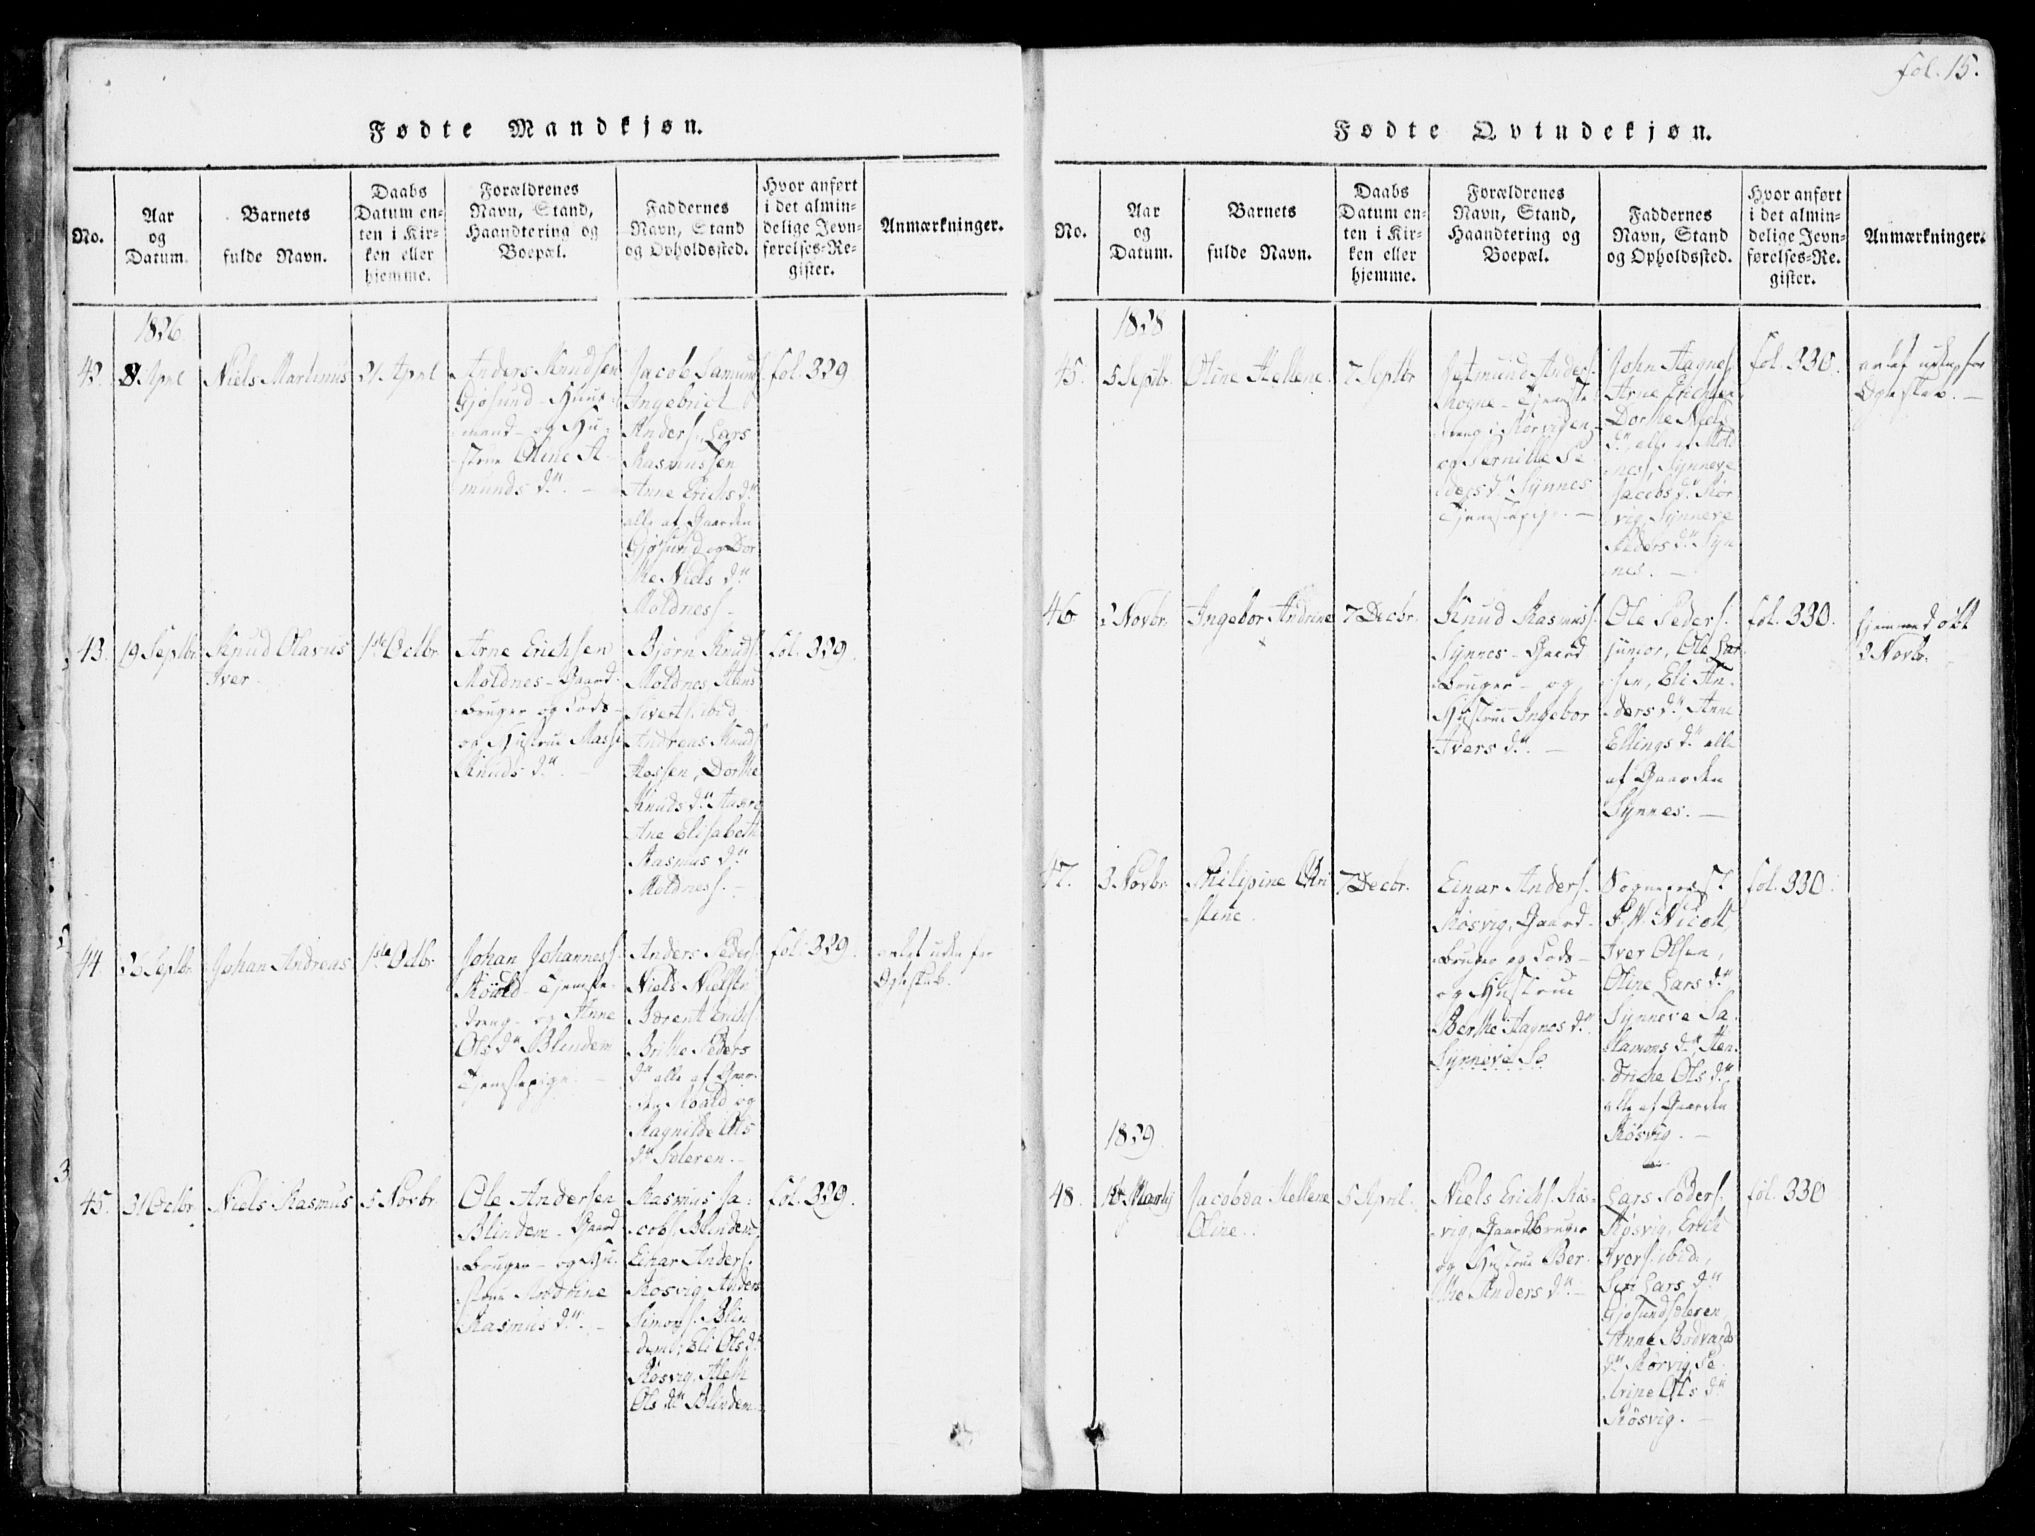 fol. 15.
Fødte Mandkjøn.
No.
Aar
og
Datum.
Barnets
fulde Navn.
Daabs
Datum en-
ten i Kir-
ken eller
hjemme.
Forældrenes
Navn, Stand,
Haandtering og
Boepæl.
Faddernes
Navn, Stand
og Opholdssted.
Hvor anført
i det almin-
delige Jevn-
førelses-Re-
gister.
Anmærkninger.
1826
42.
8 April
Niels Martinus
21 April
Anders Knudsen
Gjøsund - Huus-
mand - og Hu-
strue Oline A-
munds d.
Jacob Samunds.
Ingebrigt
Anders. Lars
Rasmussen
Anne Erichs d.
alle af Gaarden
Gjøsund og Dor-
the Niels d.
Moldness.
fol. 329
43.
19 Septbr.
Knud Olavus
Iver.
1ste Octbr.
Arne Erichsen
Moldnes - Gaard-
bruger og Lods -
og Hustrue Masse
Knuds d.
Bjørn Knuds.
Moldnes, Hans
Siverts. ibid.
Andreas Knuds.
Rossen, Dorthe
Knuds d.
Ane Elisabeth
Rasmus d.
Moldness.
fol. 329
44.
26 Septbr.
Johan Andreas
1ste Octbr.
Johan Johanness.
Roald - Tjeneste-
dreng - og Anne
Ols d. Blindem
Tjenestepige.
Anders Peders.
Niels
Bærent Erichs.
Brithe Peders
d. alle af Gaar-
den Roald og
Magnilde Ols
d. Soleren.
fol. 329.
avlet uden for
Egteskab.
45.
31 Octbr.
Niels Rasmus
5 Novbr.
Ole Andersen
Blindem - Gaard-
bruger - og Hu-
strue Andrine
Rasmus d.
Rasmus Ja-
cobs. Blindem,
Einar Anders.
Røsvig, Anders
Simons. Blin-
dem, Eli Ols d.
Røsvig,
Ols d. Blindem.
fol. 329.
Fødte Qvindekjøn.
No.
Aar
og
Datum.
Barnets
fulde Navn.
Daabs
Datum en-
ten i Kir-
ken eller
hjemme.
Forældrenes
Navn, Stand,
Haandtering og
Boepæl.
Faddernes
Navn, Stand
og Opholdssted.
Hvor anført
i det almin-
delige Jevn-
førelses-Re-
gister.
Anmærkninger.
1828
45.
5 Septbr.
Oline Hellene.
7 Septbr
Anders.
Rogne - Tjeneste-
dreng i Rørvigen -
og Pernille Pe-
ders d. Synnes
Tjenestepige.
John Aagnes.
Arne Erichsen
Dorthe Niels
d. alle af Mold-
nes, Synneve
Jacobs d. Rør-
vig, Synneve
Peders d. Syn-
nes.
fol. 330.
avlet uden for
Egteskab.
46
2 Novbr.
Ingebor Andrine
7 Decbr.
Knud Rasmuss.
Synnes - Gaard-
bruger - og
Hustrue Ingebor
Ivers d.
Ole Peders.
junior, Ole Lar-
sen, Eli An-
ders d. Anne
Ellings d. alle
af Gaarden
Synnes.
fol. 330.
hjemmedøbt
2 Novbr.
47.
3 Novbr.
Philipine Chri-
stine.
7 Decbr.
Einar Anders.
Røsvig, Gaard-
bruger og Lods -
og Hustrue
Berthe Aagnes d.
Synneve Pe
Sognepræst
Nicoll,
Iver Olsen,
Oline Lars d.
Synneve Sa-
lamons d. Hen-
driche Ols d.
alle af Gaarden
Røsvig.
fol. 330.
1829.
48.
Martij
Jacobda Hellene
Oline.
5 April.
Niels Erichs. Røs-
vig, Gaardbruger
og Hustrue Ber-
the Anders d.
Lars Peders.
Røsvig, Erich
Ivers. ibid.,
Siri Lars d.
Gjøsundsoleren,
Anne Bodvards
d. Rørvig, Pe-
trine Ols d.
Røsvig.
fol. 330